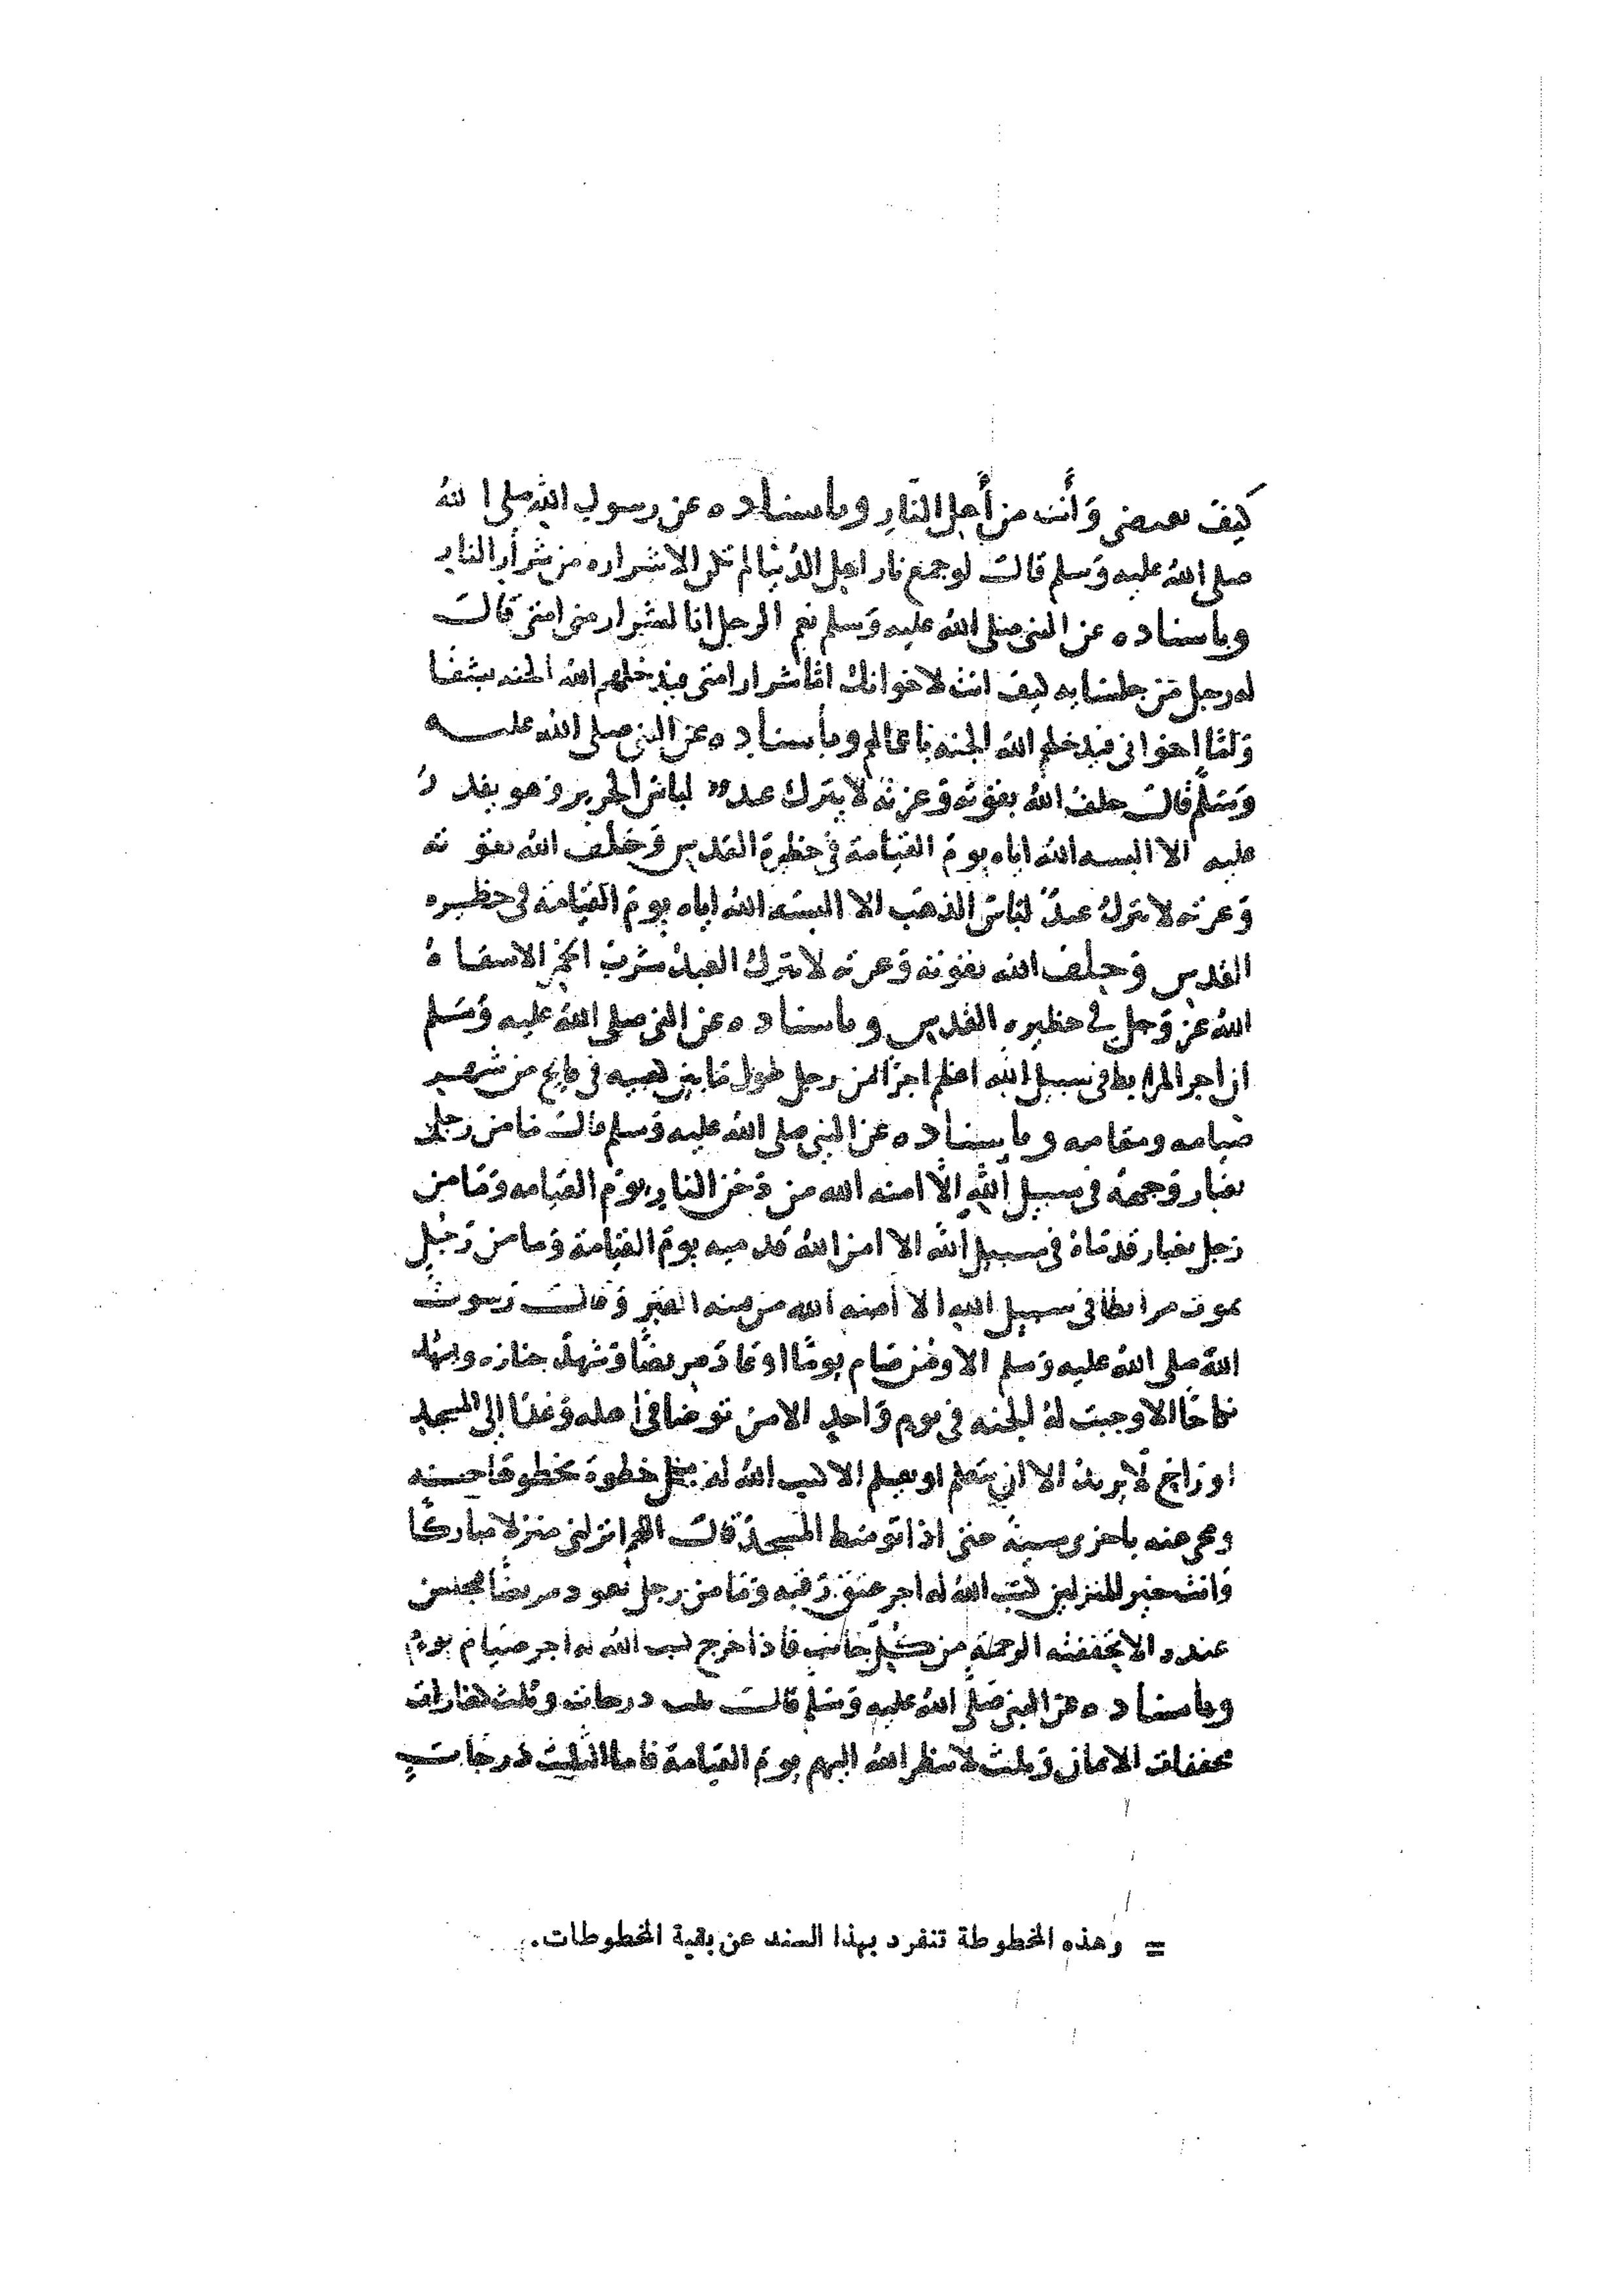 كيف تعصني وأنت من أهل النار وباسناده عن رسول الله صلى الله
صلى الله عليه وسلم قال لو جمع نار اهل الدنيا لم تكن الا شراره من شرار النار
وباسناده عن النبي صلى الله عليه وسلم نعم الرجل انا لشرار من امتي قال
له رجل من جلسايه كيف انت لاخوانك اما شرار امتي فيدخلهم الله الجنه بشفا
وأما اخواني فيدخلهم الله الجنه باعمالهم وباسناده عن النبي صلى الله عليه
وسلم قال حلف الله بقوته وعزته لا يترك عبد لباس الحرير وهو يقدر
عليه الا البسه الله اياه يوم القيامة في حظيرة القدس وحلف الله بقوته
وعزته لا يترك عبد لباس الذهب الا البسه الله اياه يوم القيامة في حظيره
القدس وحلف الله بقوته وعزته لا يترك العبد شرب الخمر الا سقاه
الله عز وجل في حظيره القدس وباسناده عن النبي صلى الله عليه وسلم
ان اجر المرابط في سبيل الله اعظم اجرا من رجل طول ما بين كعبيه في من شهر
صيامه وقيامه وباسناده عن النبي صلى الله عليه وسلم قال ما من رجل
يغبار وجهه في سبيل الله الا امنه الله من دخن النار يوم القيامه وما من
رجل يغبار قدماه في سبيل الله الا امن الله قدميه يوم القيامة وما من رجل
يموت مرابطا في سبيل الله الا أمنه الله من فتنه القبر وقال رسول
الله صلى الله عليه وسلم الا ومن صام يوما او عاد مريضا وشهد جنازه وشهد
نكاحا الا وجبت له الجنه في يوم واحد الا من توضا في اهله وغدا إلى المسجد
او راح لا يريد الا ان يتعلم او يعلم الا كتب الله له بكل خطوة يخطوها حسنه
ومحى عنه باخرى سيئة حتى اذا توسط المسجد قال اللهم انزلني منزلا مباركا
وانت خير المنزلين كتب الله له اجر عتق رقبه وما من رجل يعود مريضا فيجلس
عنده الا تخففته الرحمة من كل جانب فاذا خرج كتب الله له اجر صيام يوم
وباسناده عن النبي صلى الله عليه وسلم قال ثلث درجات وثلث كفارات
مخففات الاماز وثلث لا ينظر الله اليهم يوم القيامة فاما الثلث درجات
= وهذه المخطوطة تنفرد بهذا السند عن بقية المخطوطات.